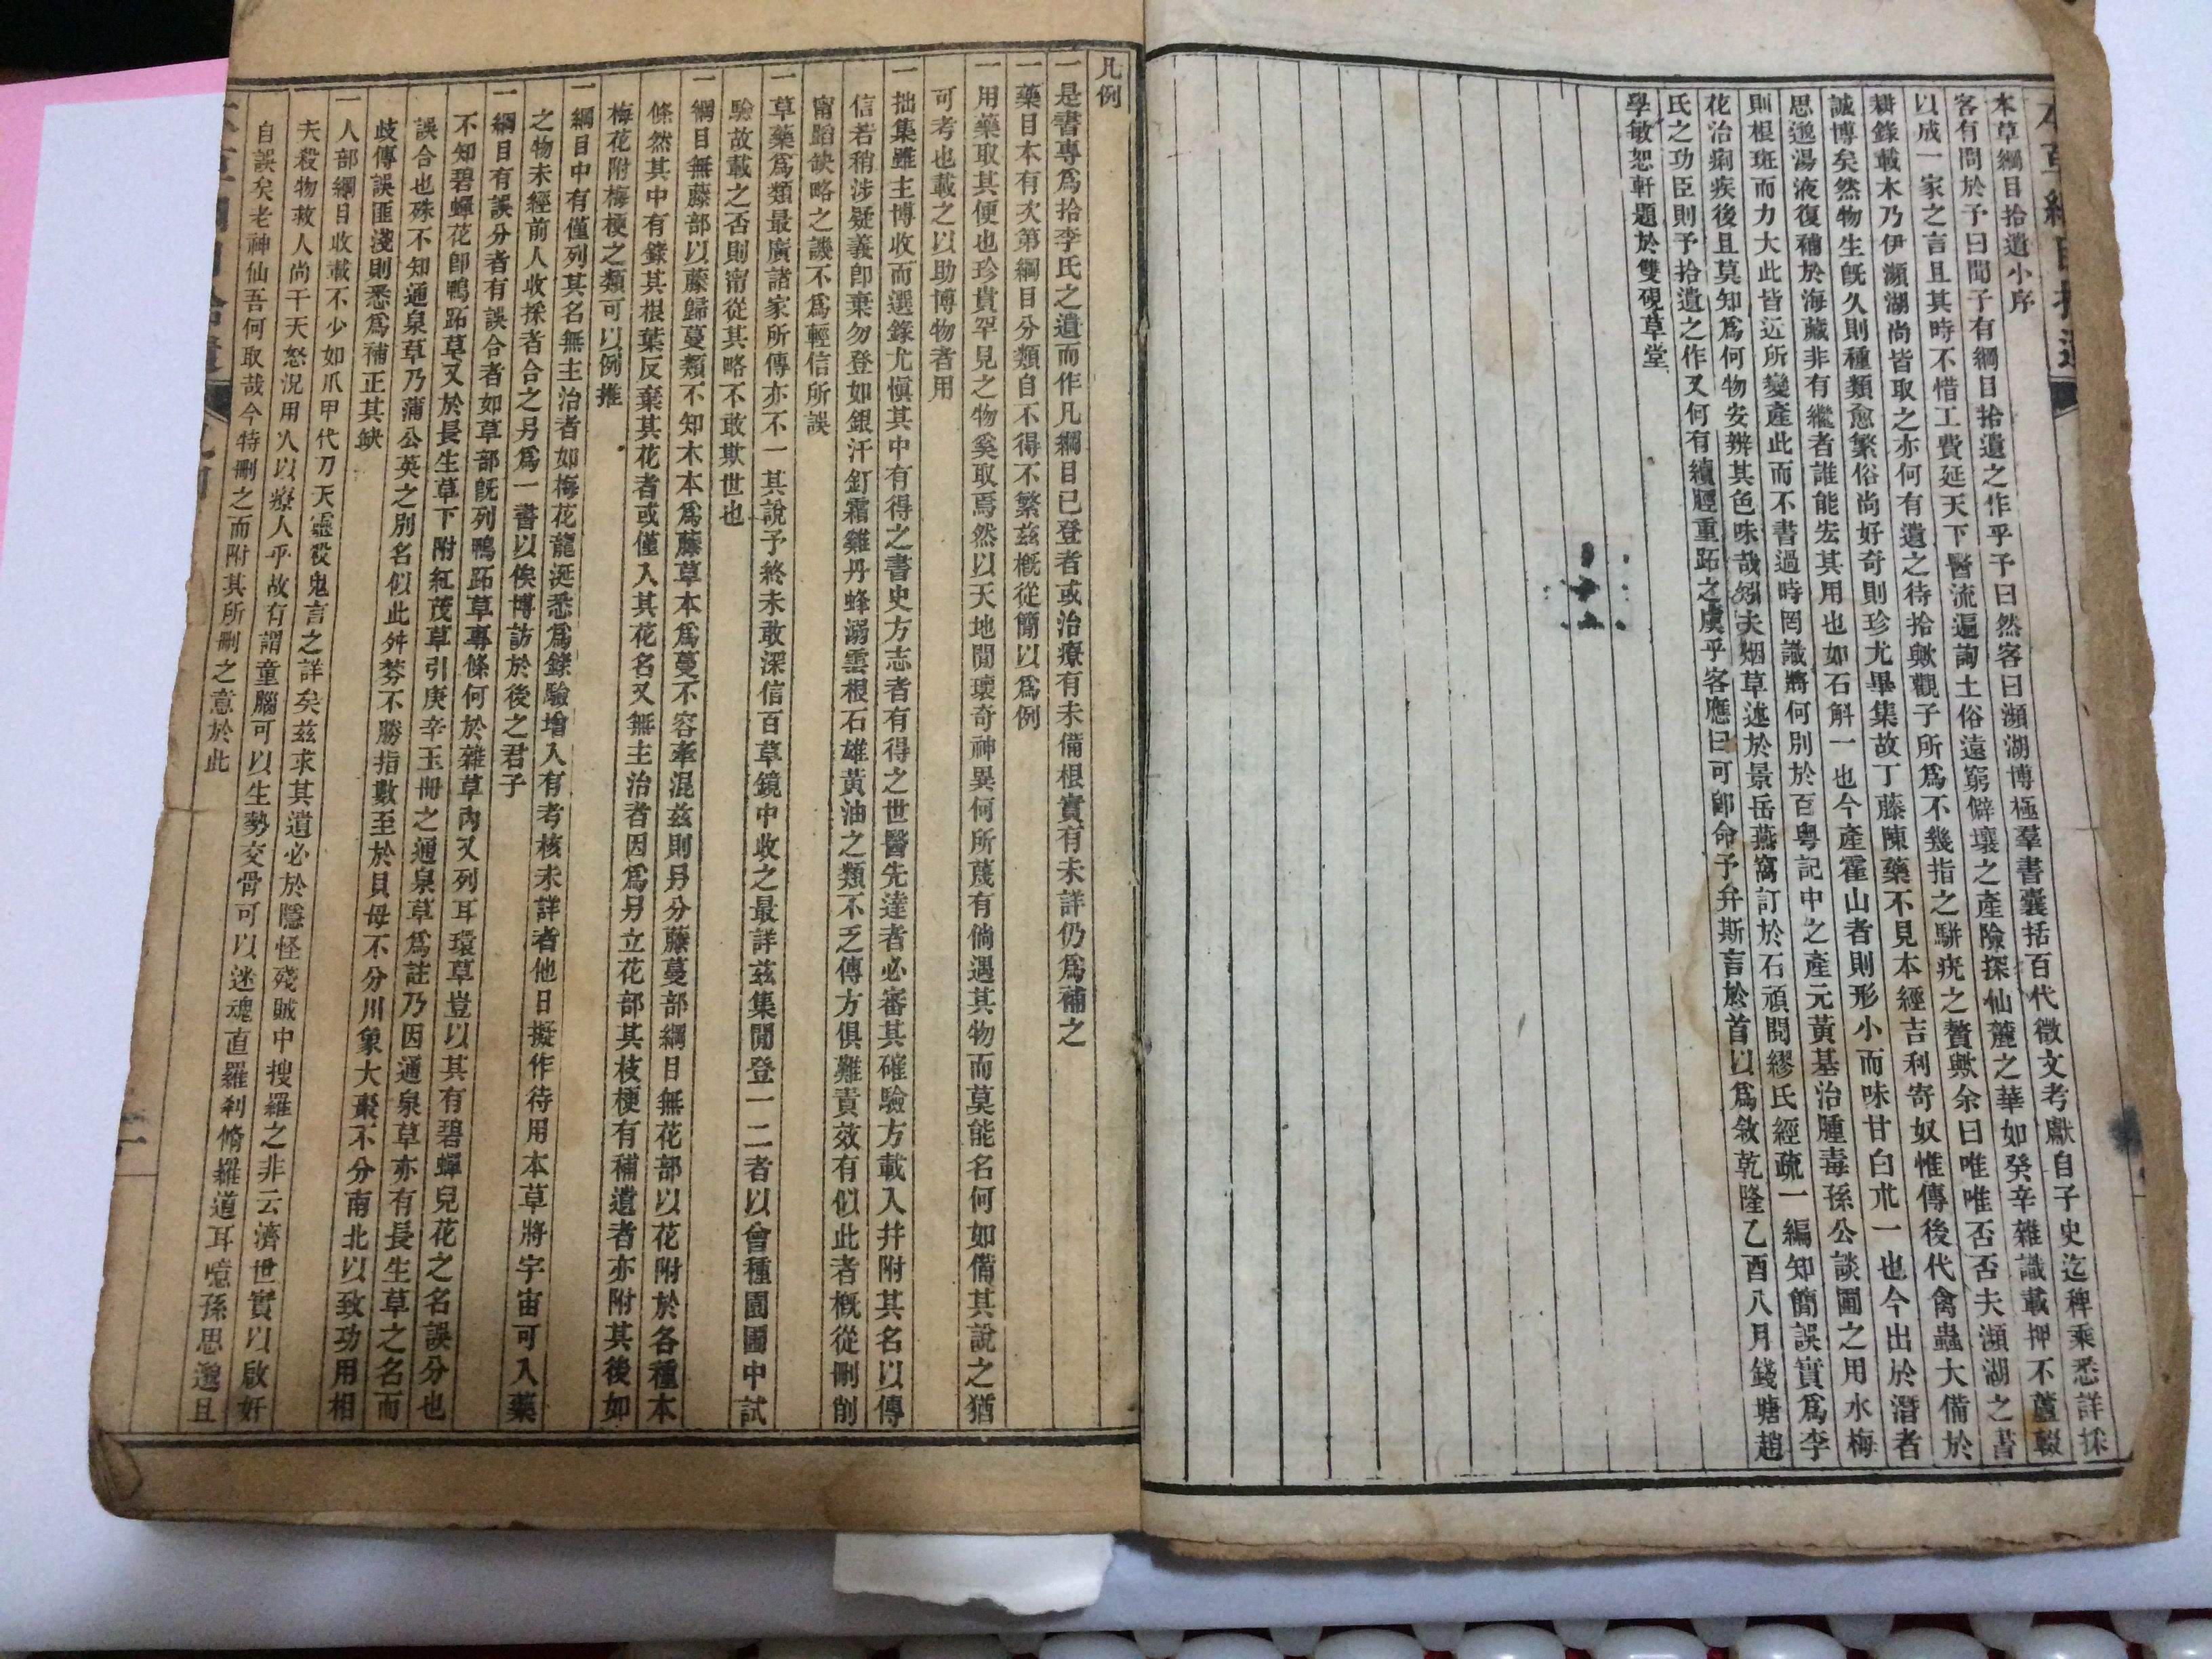 本草綱目拾遺
本草綱目拾遺小序
客有問於予曰聞子有綱目拾遺之作乎予曰然客曰瀕湖博極羣書囊括百代徵文考獻自子史迄稗乘悉詳採
以成一家之言且其時不惜工費延天下醫流遍詢土俗遠窮僻壤之產險探仙麓之華如癸辛雜識載押不蘆輟
耕錄載木乃伊瀕湖尚皆取之亦何有遺之待拾歟觀子所爲不幾指之駢疣之贅歟余曰唯唯否否夫瀕湖之書
誠博矣然物生旣久則種類愈繁俗尚好奇則珍尤畢集故丁藤陳藥不見本經吉利寄奴惟傳後代禽蟲大備於
思邈湯液復補於海藏非有繼者誰能宏其用也如石斛一也今產霍山者則形小而味甘白朮一也今出於潛者
則根斑而力大此皆近所變產此而不書過時罔識將何別於百粤記中之產元黃基治腫毒孫公談圃之用水梅
花治痢疾後且莫知爲何物安辨其色味哉矧夫烟草述於景岳燕窩訂於石頑閱繆氏經疏一編知簡誤實爲李
氏之功臣則予拾遺之作又何有續脛重跖之虞乎客應曰可卽命予弁斯言於首以爲敘乾隆乙酉八月錢塘趙
學敏恕軒題於雙硯草堂
凡例
一是書專爲拾李氏之遺而作凡綱目已登者或治療有未備根實有未詳仍爲補之
一藥目本有次第綱目分類自不得不繁茲槪從簡以爲例
一用藥取其便也珍貴罕見之物奚取焉然以天地閒瓌奇神異何所蔑有倘遇其物而莫能名何如備其說之猶
可考也載之以助博物者用
一拙集雖主博收而選錄尤愼其中有得之書史方志者有得之世醫先達者必審其確驗方載入幷附其名以傳
信若稍涉疑義卽棄勿登如銀汗釘霜雞丹蜂溺雲根石雄黃油之類不乏傳方俱難責效有似此者槪從刪削
甯蹈缺略之譏不爲輕信所誤
一草藥爲類最廣諸家所傳亦不一其說予終未敢深信百草鏡中收之最詳茲集閒登一二者以曾種園圃中試
驗故載之否則甯從其略不敢欺世也
一綱目無藤部以藤歸蔓類不知木本爲藤草本爲蔓不容牽混茲則另分藤蔓部綱目無花部以花附於各種本
條然其中有錄其根葉反棄其花者或僅入其花名又無主治者因爲另立花部其枝梗有補遺者亦附其後如
梅花附梅梗之類可以例推
一綱目中有僅列其名無主治者如梅花龍涎悉爲錄驗增入有考核未詳者他日擬作待用本草將宇宙可入藥
之物未經前人收採者合之另爲一書以俟博訪於後之君子
一綱目有誤分者有誤合者如草部旣列鴨跖草專條何於雜草內又列耳環草豈以其有碧蟬兒花之名誤分也
不知碧蟬花卽鴨跖草又於長生草下附紅茂草引庚辛玉冊之通泉草爲註乃因通泉草亦有長生草之名而
誤合也殊不知通泉草乃蒲公英之別名似此舛棼不勝指數至於貝母不分川象大棗不分南北以致功用相
歧傳誤匪淺則悉爲補正其缺
一人部綱目收載不少如爪甲代刀天靈殺鬼言之詳矣茲求其遺必於隱怪殘賊中搜羅之非云濟世實以啟奸
夫殺物救人尚干天怒況用人以療人乎故有謂童腦可以生勢交骨可以迷魂直羅刹脩羅道耳噫孫思邈且
自誤矣老神仙吾何取哉今特刪之而附其所刪之意於此
本草綱目拾遺
凡例
一